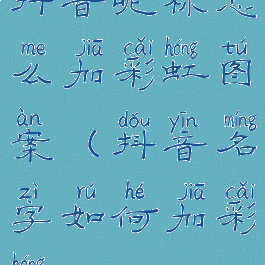 抖音昵称怎
me jiā cǎi hóng tú
么加彩虹图
àn dǒu yīn míng
案（抖音名
zì rú hé jiā cǎi
字如何加彩
hóng